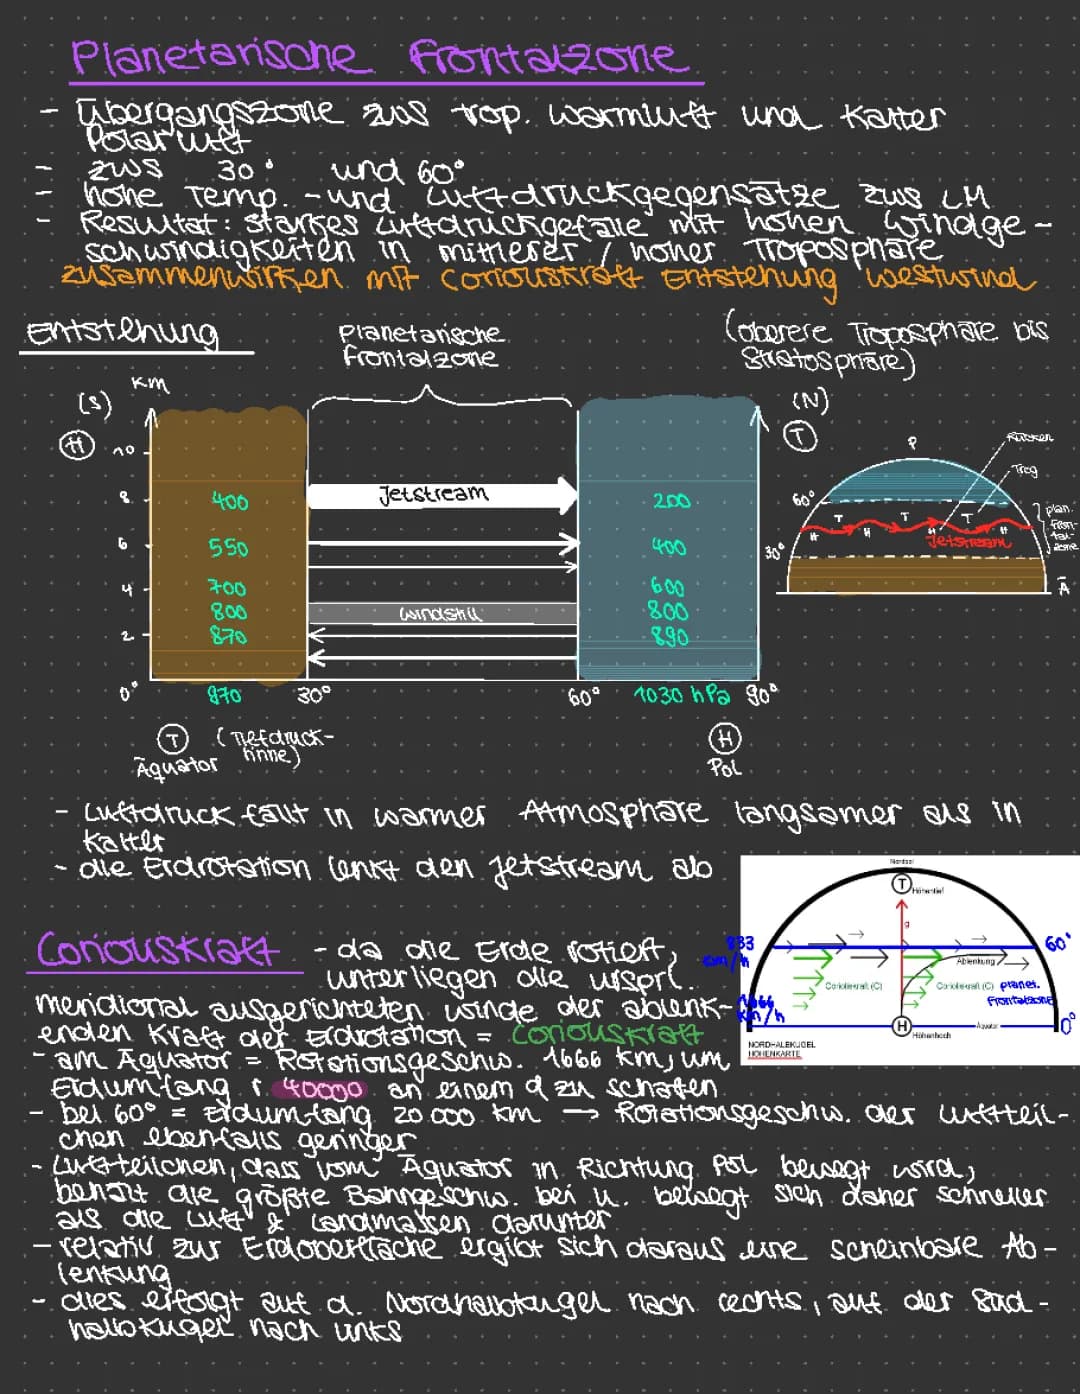 Planetarische Frontalzone
- Übergangszone zws trop. Warmluft und Kalter
Polarluft
- zws 30° und 60°
- hohe Temp.- und Luftdruckgegensätze zws LM
- Resultat: starkes Luftdruckgefälle mit hohen Windge-
schwindigkeiten in mittlerer / hoher Troposphäre
zusammenwirken mit Corioliskraft Entstehung Westwind
(oberere Troposphäre bis
Stratosphäre)
Entstehung
Planetarische
Frontalzone
km
(S)
(N)
H
T
10
8
6
4
2
0°
400
550
700
800
870
Jetstream
windstill
200
400
600
800
890
970
30°
60°
1030 hPa
90°
T (Tiefdruck-
rinne)
Äquator
H
Pol
P
Rücken
Trog
60°
30°
T T T
H H H H
Jetstream
plan.
Fron-
tal-
zone
Ä
- Luftdruck fällt in warmer Atmosphäre langsamer als in
Kalter
- die Erdrotation lenkt den Jetstream ab
Nordpol
T
Höhentief
g
833
km/h
60°
Ablenkung
Corioliskraft (C)
Corioliskraft (C)
planet.
Frontalzone
1666
km/h
H
Höhenhoch
Äquator
0°
NORDHALBKUGEL
HÖHENKARTE
Corioliskraft - da die Erde rotiert,
unterliegen die urspr.
meridional ausgerichteten winde der ablenk-
enden Kraft der Erdrotation = Corioliskraft
- am Äquator = Rotationsgeschw. 1666 km, um
Erdumfang v. 40000 an einem d zu schaffen
- bei 60° = Erdumfang 20.000 km → Rotationsgeschw. der Luftteil-
chen ebenfalls geringer
- Luftteilchen, dass vom Äquator in Richtung Pol bewegt wird,
behält die größte Bahngeschw. bei u. bewegt sich daher schneller
als die Luft & Landmassen darunter
- relativ zur Erdoberfläche ergibt sich daraus eine scheinbare Ab-
lenkung
- dies erfolgt auf d. Nordhalbkugel nach rechts, auf der Süd-
halbkugel nach links